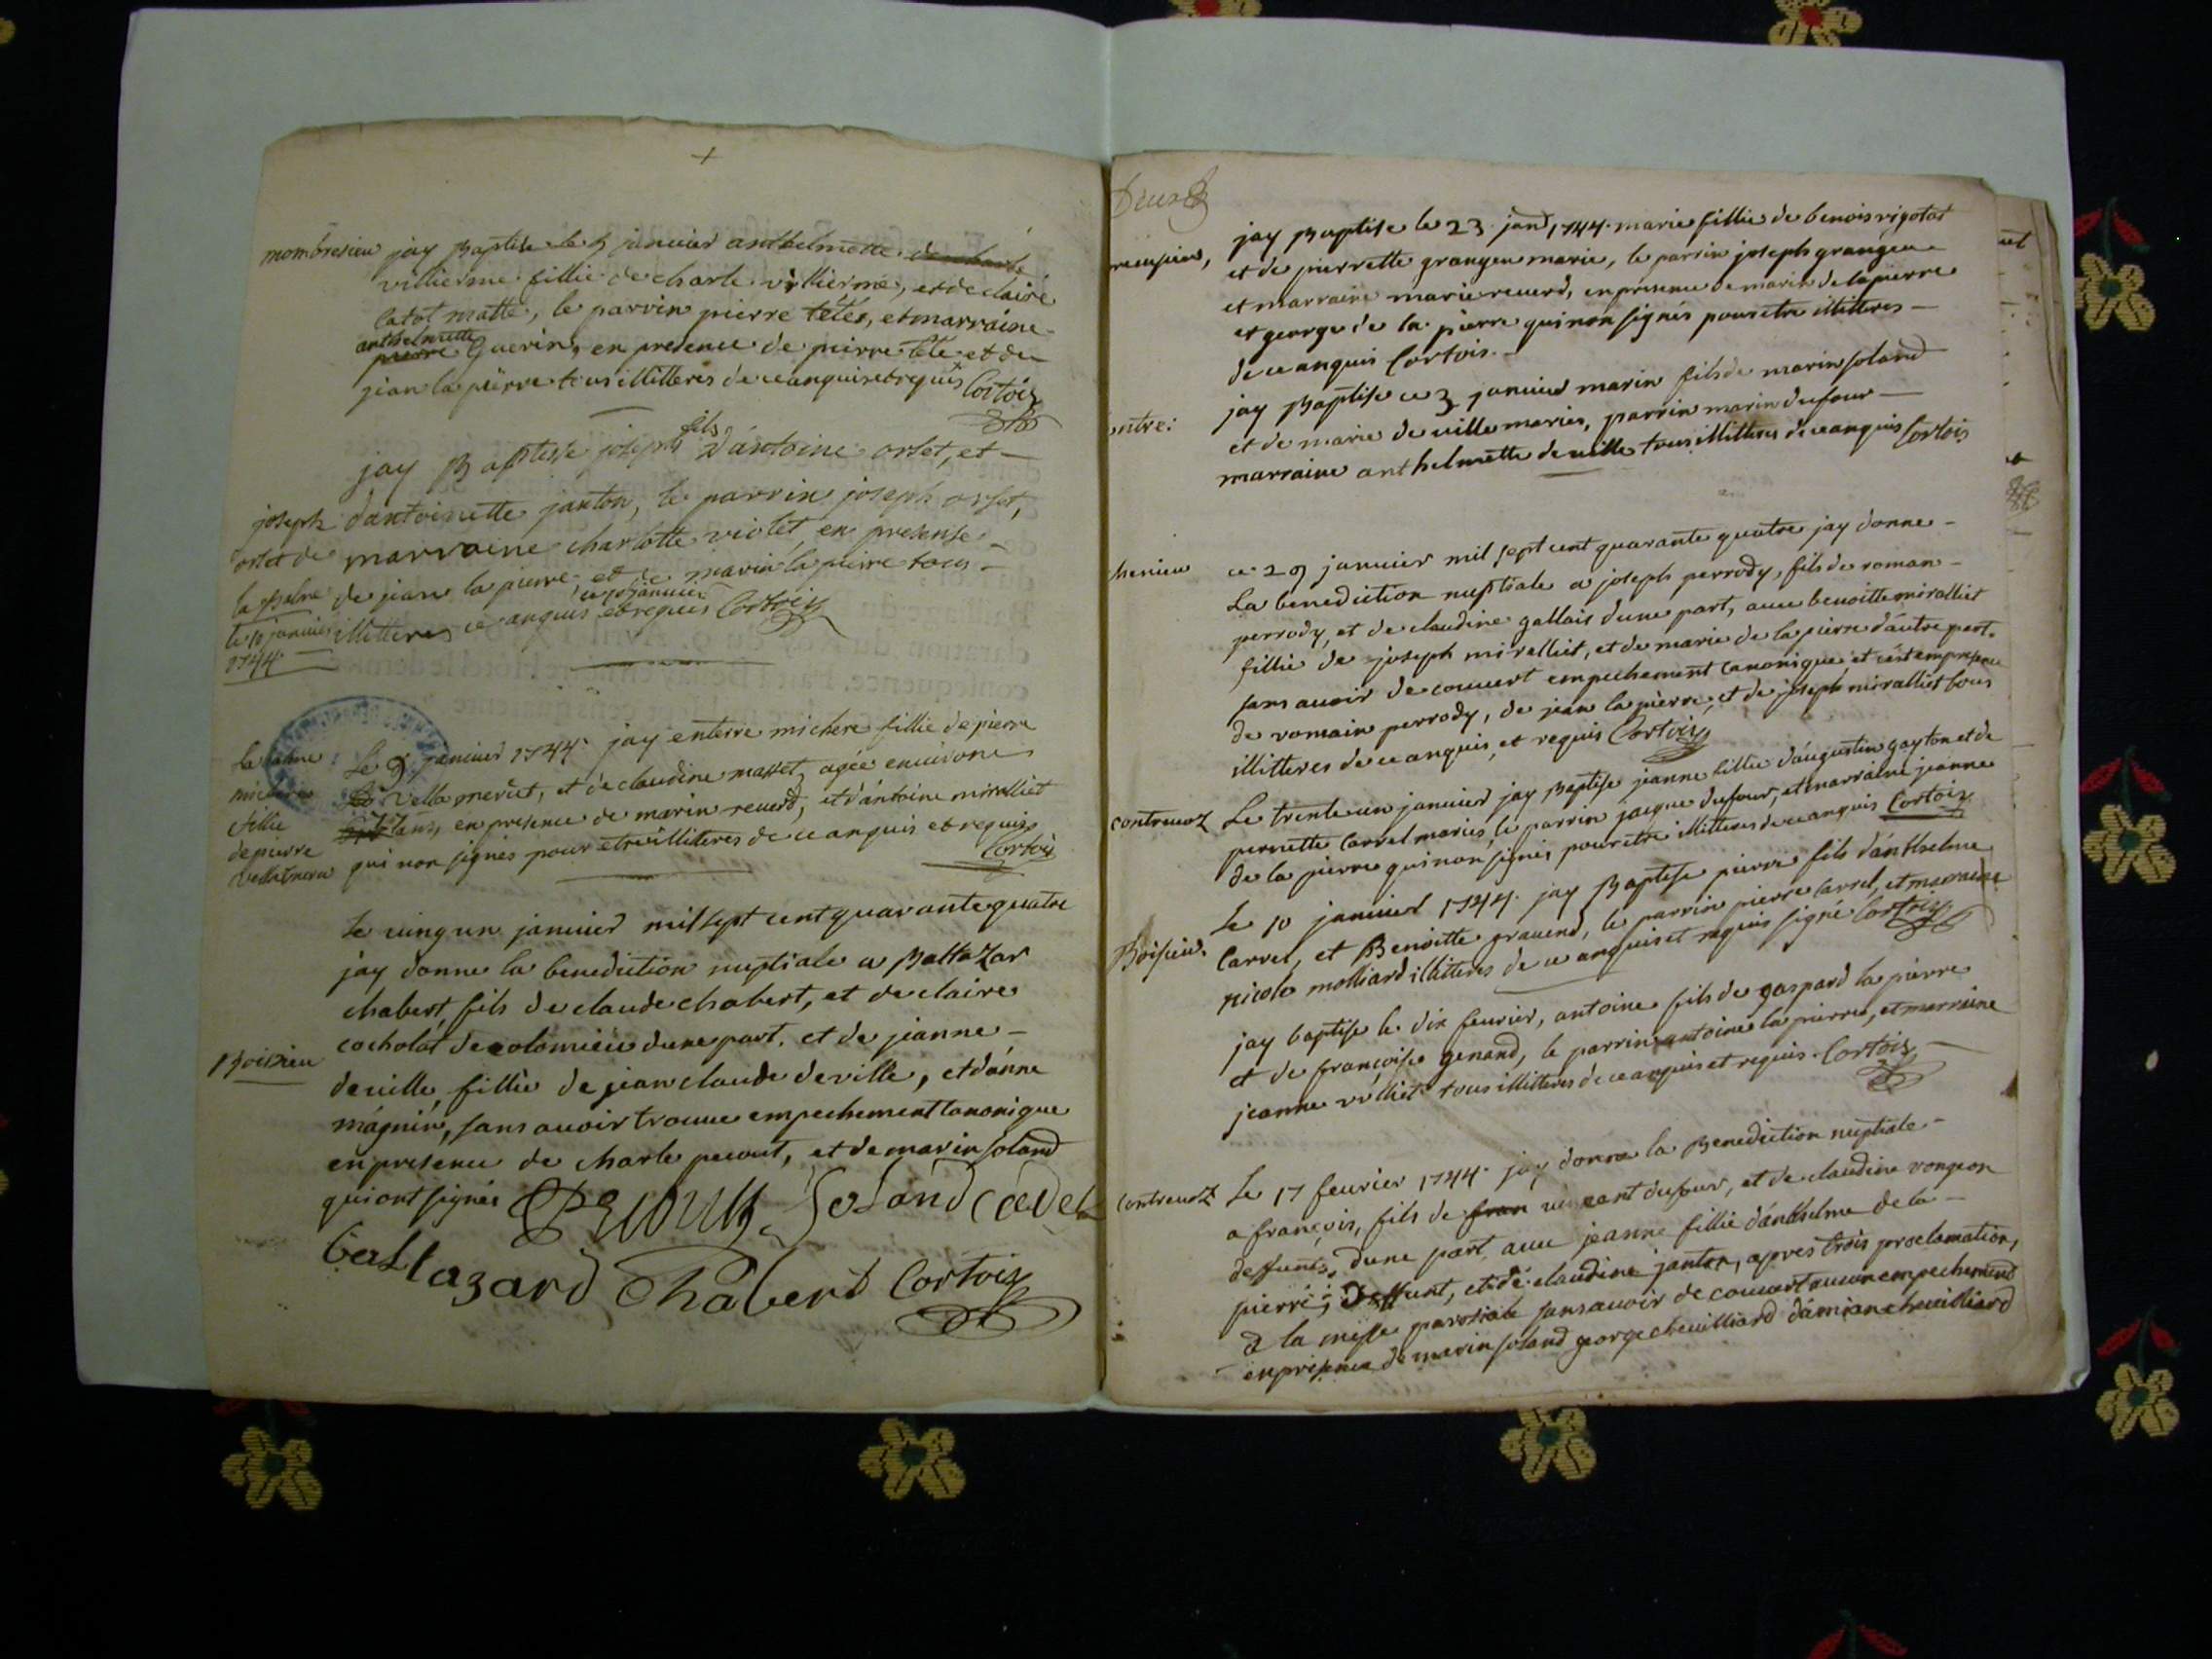 +
mombresieu jay Baptise le 9 janvier anthelmette de charle
villierme fillie de charle villierme, et de claire
catot matte, le parrin pierre tétes, et marraine
anthelmette
pierre Guerin, en presence de pierre tete et de
jean la pierre tous illitteres de ce anquis et requis Cortois
fils
jay Baptisse joseph d'antoine orset, et
joseph d'antoinette janton, le parrin joseph orset,
orset de marraine charlotte violet, en presense
la balme de jean la pierre, et de marin la pierre tous
ce 10 janvier
le 10 janvier illitteres ce anquis et requis Cortois
1744
la balme le 9 janvier 1744 jay enterre michere fillie de pierre
michere vella merut, et de claudine masset agée environ
fillie ans, en presence de marin reverd, et d'antoine miralliet
de pierre qui non signes pour etre illitteres de ce anquis et requis
vella meru Cortois
Le cinq un janvier mil sept cent quarante quatre
jay donne la benediction nuptiale a Baltazar
chabert, fils de claude chabert, et de claire
cocholat de colomieu dune part, et de jeanne
Boissieu deville, fillie de jean claude deville, et d'anne
mágnin, sans avoir trouve empechement canonique
en presence de charle pecout, et de marin soland
qui ont signés Soland Cadet
baltazard Chabert Cortois
Deux
jay Baptise le 23 janv 1744 marie fillie de benois rigotat
et de pierrette grangeu marie, le parrin joseph grangeu
et marraine marie reverd, en presence de marin de la pierre
et george de la pierre qui non signés pour etre illitteres
de ce anquis Cortois
jay Baptise ce 3 janvier marin fils de marin soland
et de marie de ville maries, parrin marin dufour
marraine anthelmette deville tous illitteres de ce anquis Cortois
ce 29 janvier mil sept cent quarante quatre jay donne
La benediction nuptiale a joseph perrody, fils de roman
perrody, et de claudine gallais dune part, avec benoitte miralliet
fillie de joseph miralliet, et de marie de la pierre d'autre part
sans avoir decouvert empechement canonique, et cest en presence
de romain perrody, de jean la pierre, et de joseph miralliet tous
illitteres de ce anquis, et requis Cortois
contrevoz Le trente un janvier jay Baptise jeanne fillie d'augustin gayton et de
pernette Carrel maries, le parrin jacque dufour, et marraine jeanne
de la pierre qui non signés pour etre illitteres de ce anquis Cortois
Le 10 janvier 1744 jay Baptise pierre fils d'anthelme
Boisieu Carrel, et Benoitte gravend, le parrin pierre Carrel, et marraine
nicole molliard illitteres de ce anquis et requis signé Cortois
jay baptise le dix fevrier, antoine fils de gaspard la pierre
et de françoise genand, le parrin antoine la pierre, et marraine
jeanne tous illitteres de ce anquis et requis Cortois
contrevoz Le 17 fevrier 1744 jay donne la Benediction nuptiale
a françois, fils de fran vincent dufour, et de claudine vongeon
deffunts, dune part avec jeanne fillie d'anthelme de la
pierre, deffunt, et de claudine janton, apres trois proclamation,
a la messe paroisiale sans avoir decouvert aucun empechement
en presence de marin soland george chevilliard damian chevilliard